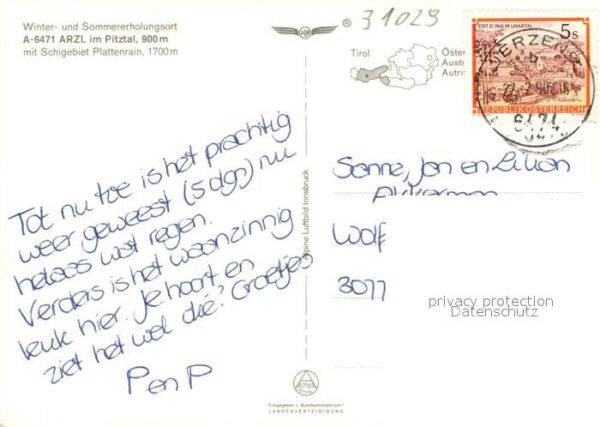 Winter- und Sommererholungsort
A-6471 ARZL im Pitztal, 900 m
mit Schigebiet Plattenrain, 1700 m
31029
Tirol
Öster
Aust
Autri
STIFT ST. PAUL IM LAVANTTAL
5s
REPUBLIK ÖSTERREICH
JERZENS
6474
Tot nu toe is het prachtig
weer geweest (5 dgn) nu
helaas wat regen.
Verders is het waanzinnig
leuk hier. Je hoort, en
ziet het wel die. Groetjes
P en P
Alpine Luftbild Innsbruck
Sanne, Jan en Lilian
Wolf
3077
privacy protection
Datenschutz
Freigegeben v. Bundesministerium f.
LANDESVERTEIDIGUNG